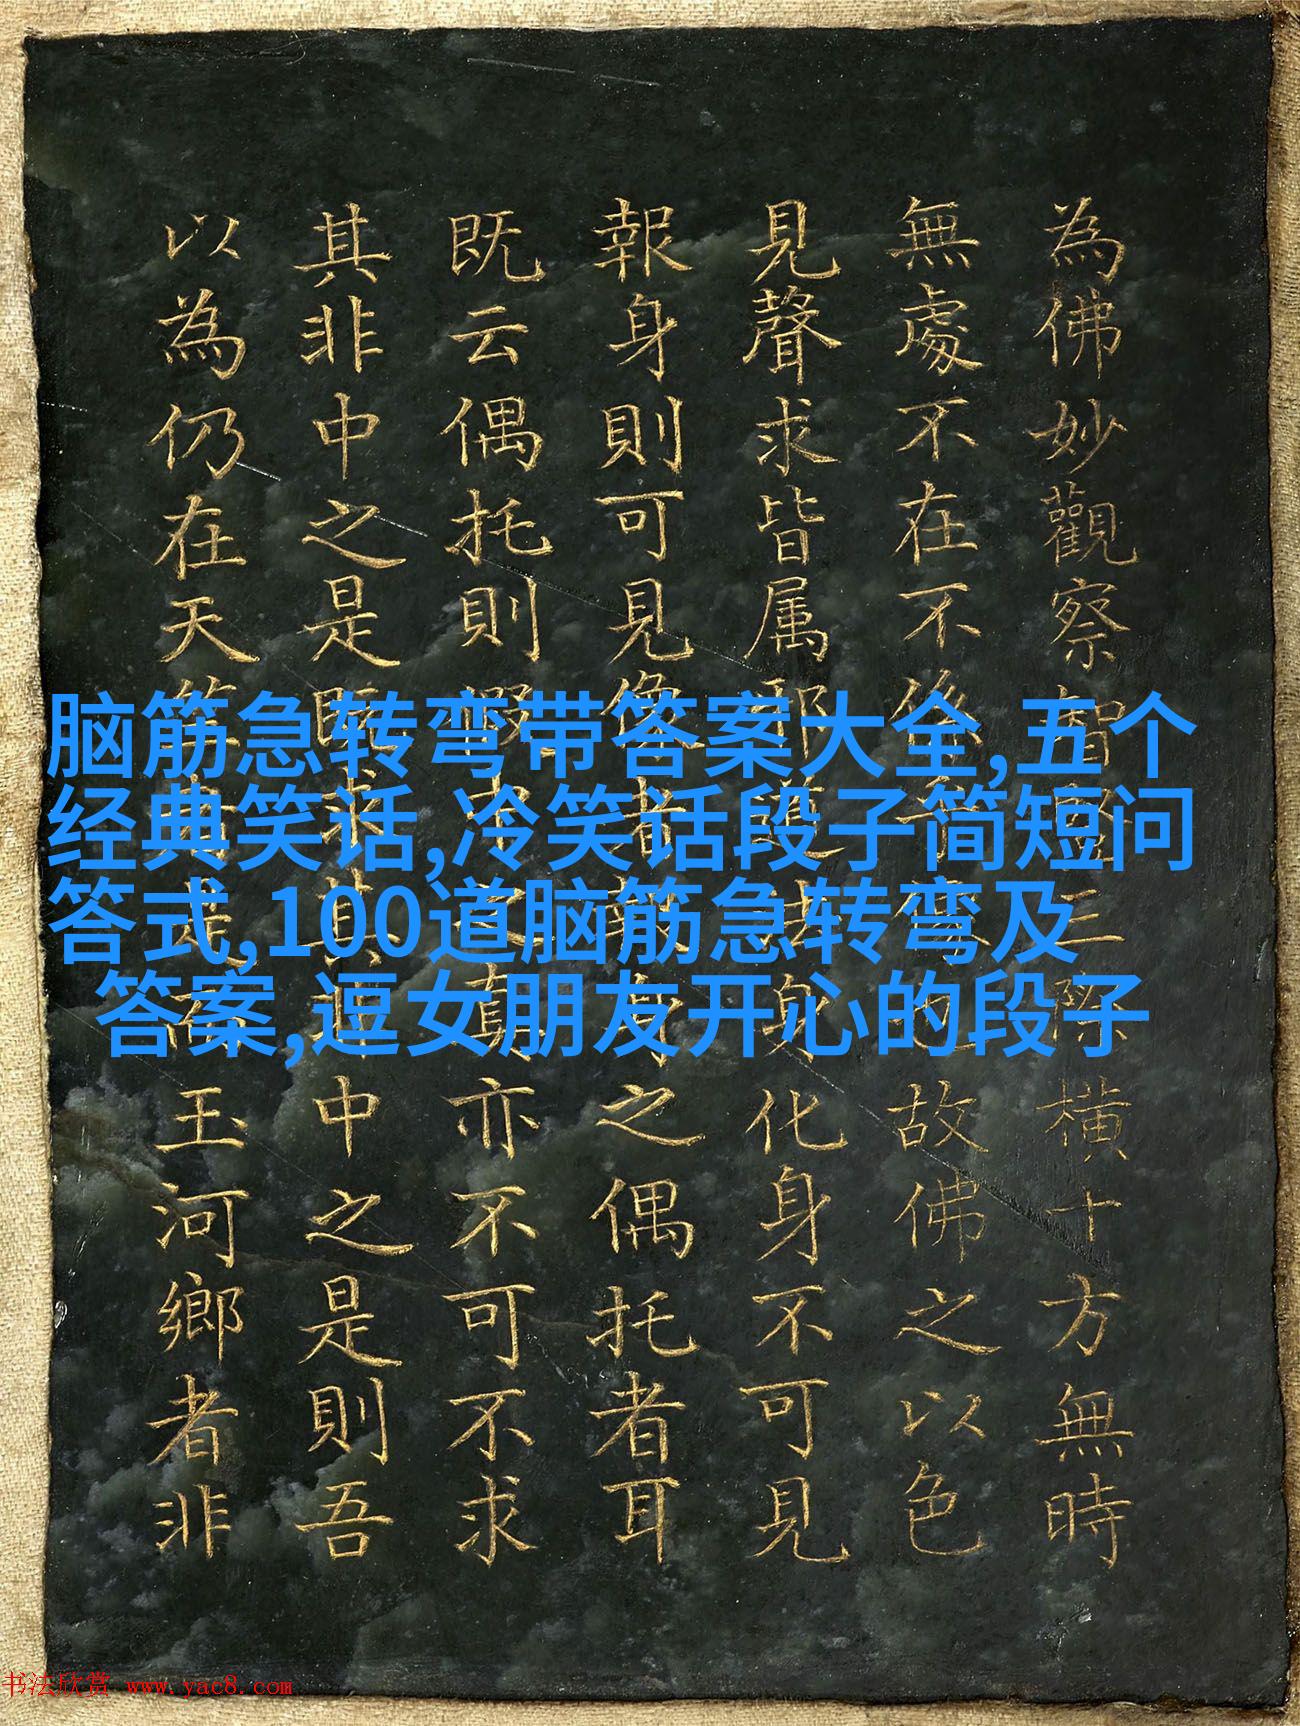 為佛妙觀察智三際橫十方無時
無處不在不後故佛之以色
見聲求皆属邪身化身不可見
報身則可見像者身之偶托者耳
既云偶托則假中之真亦不可不求
其非中之是求其非中之是則吾
以為仍在天竺玉河鄉者非
脑筋急转弯带答案大全,五个
经典笑话,冷笑话段子简短问
答式,100道脑筋急转弯及
答案,逗女朋友开心的段子
书法欣赏 www.yac8.com